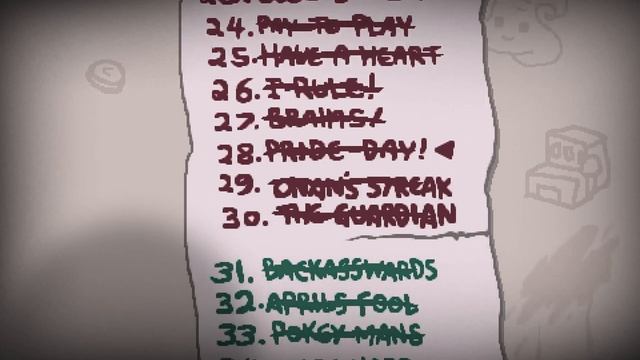 24. PAY TO PLAY
25. HAVE A HEART
26. I RULE!
27. BRAINS!
28. PRIDE DAY!
29. ONAN'S STREAK
30. THE GUARDIAN
31. BACKASSWARDS
32. APRILS FOOL
33. POKEY MANS